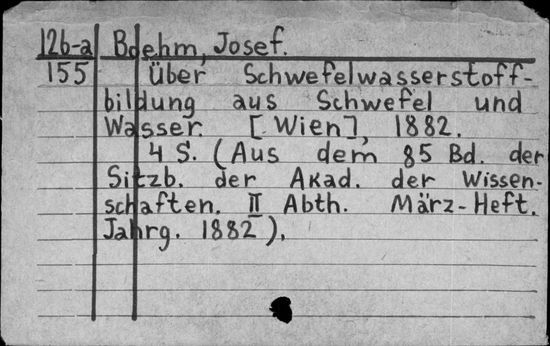 126-a Boehm, Josef.
155 Über Schwefelwasserstoff-
bildung aus Schwefel und
Wasser. [Wien], 1882.
4 S. (Aus dem 85 Bd. der
Sitzb. der Akad. der Wissen-
schaften. II Abth. März-Heft.
Jahrg. 1882).